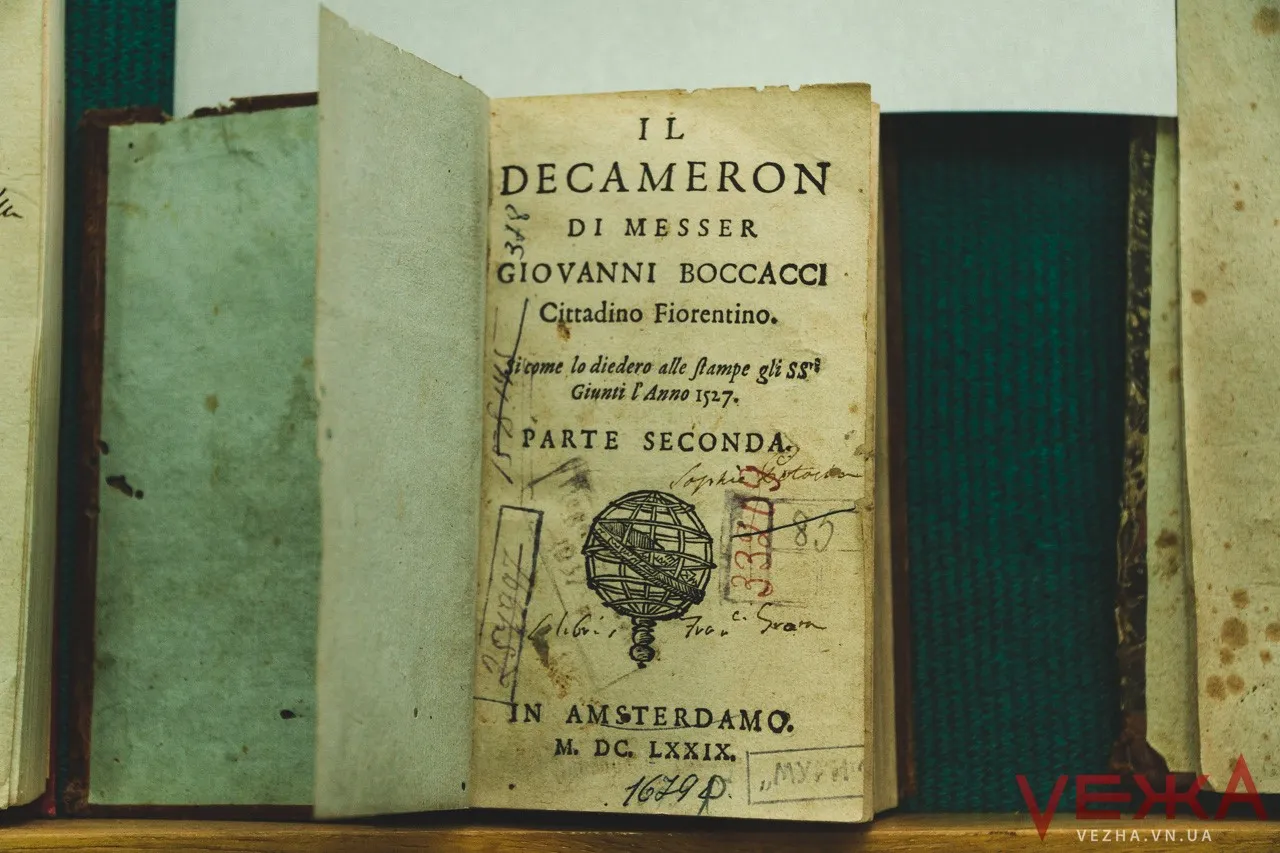 IL
DECAMERON
DI MESSER
GIOVANNI BOCCACCI
Cittadino Fiorentino.
Si come lo diedero alle ſtampe gli SSri
Giunti l'Anno 1527.
PARTE SECONDA.
318
Sophie
33203
83
Franci
IN AMSTERDAMO.
M. DC. LXXIX.
1679 р.
VEЖA
VEZHA.VN.UA